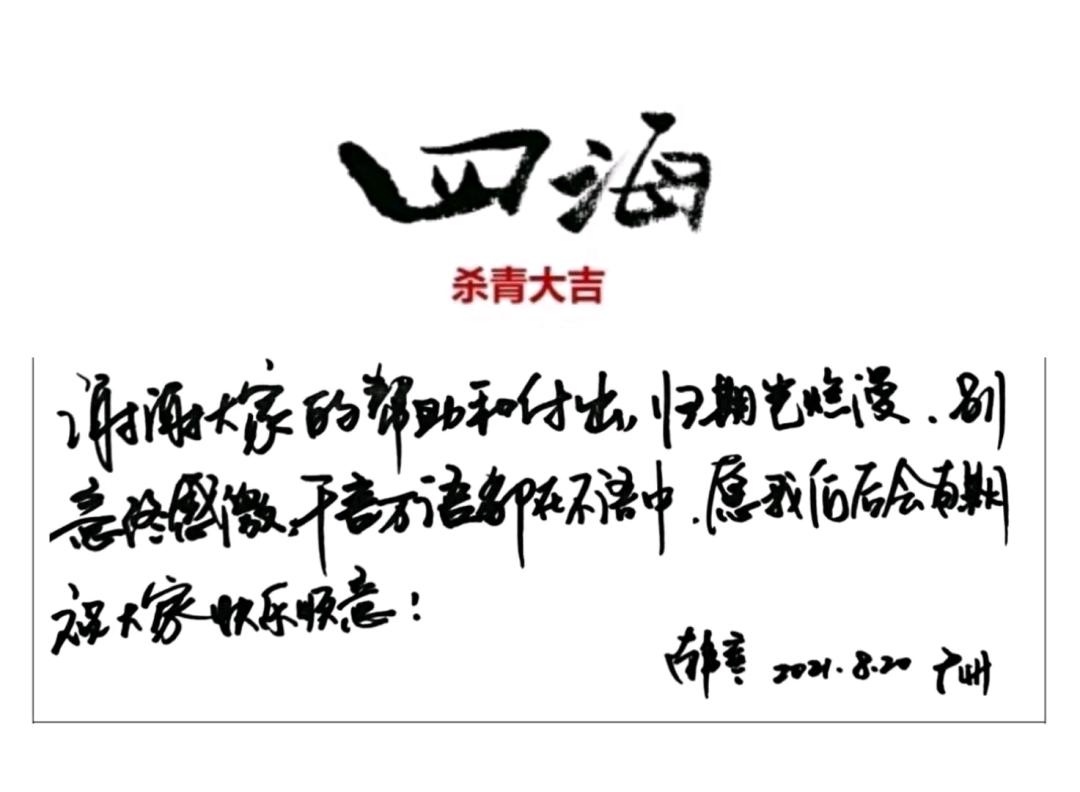 四海
杀青大吉
谢谢大家的帮助和付出,归期光烂漫、别
意终感激,千言万语都在不语中.愿我们后会有期
祝大家快乐顺意!
韩寒 2021.8.20 广州